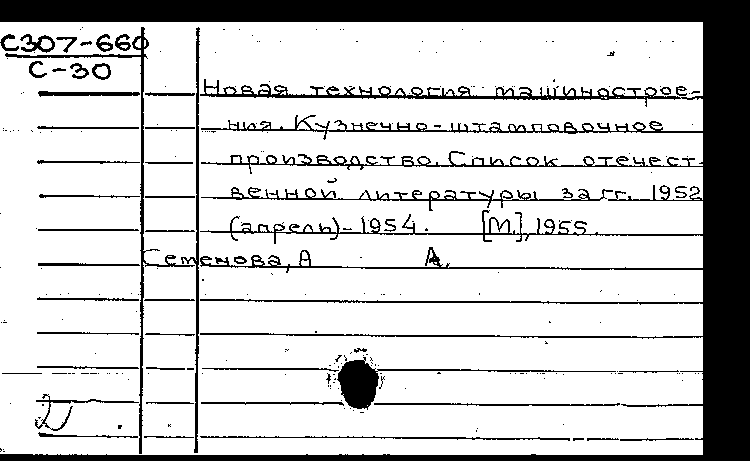 С307-660
С-30
Новая технология машинострое-
ния. Кузнечно-штамповочное
производство. Список отечест-
венной литературы за гг. 1952
(апрель)-1954. [М.], 1955.
Семенова, А А.
2